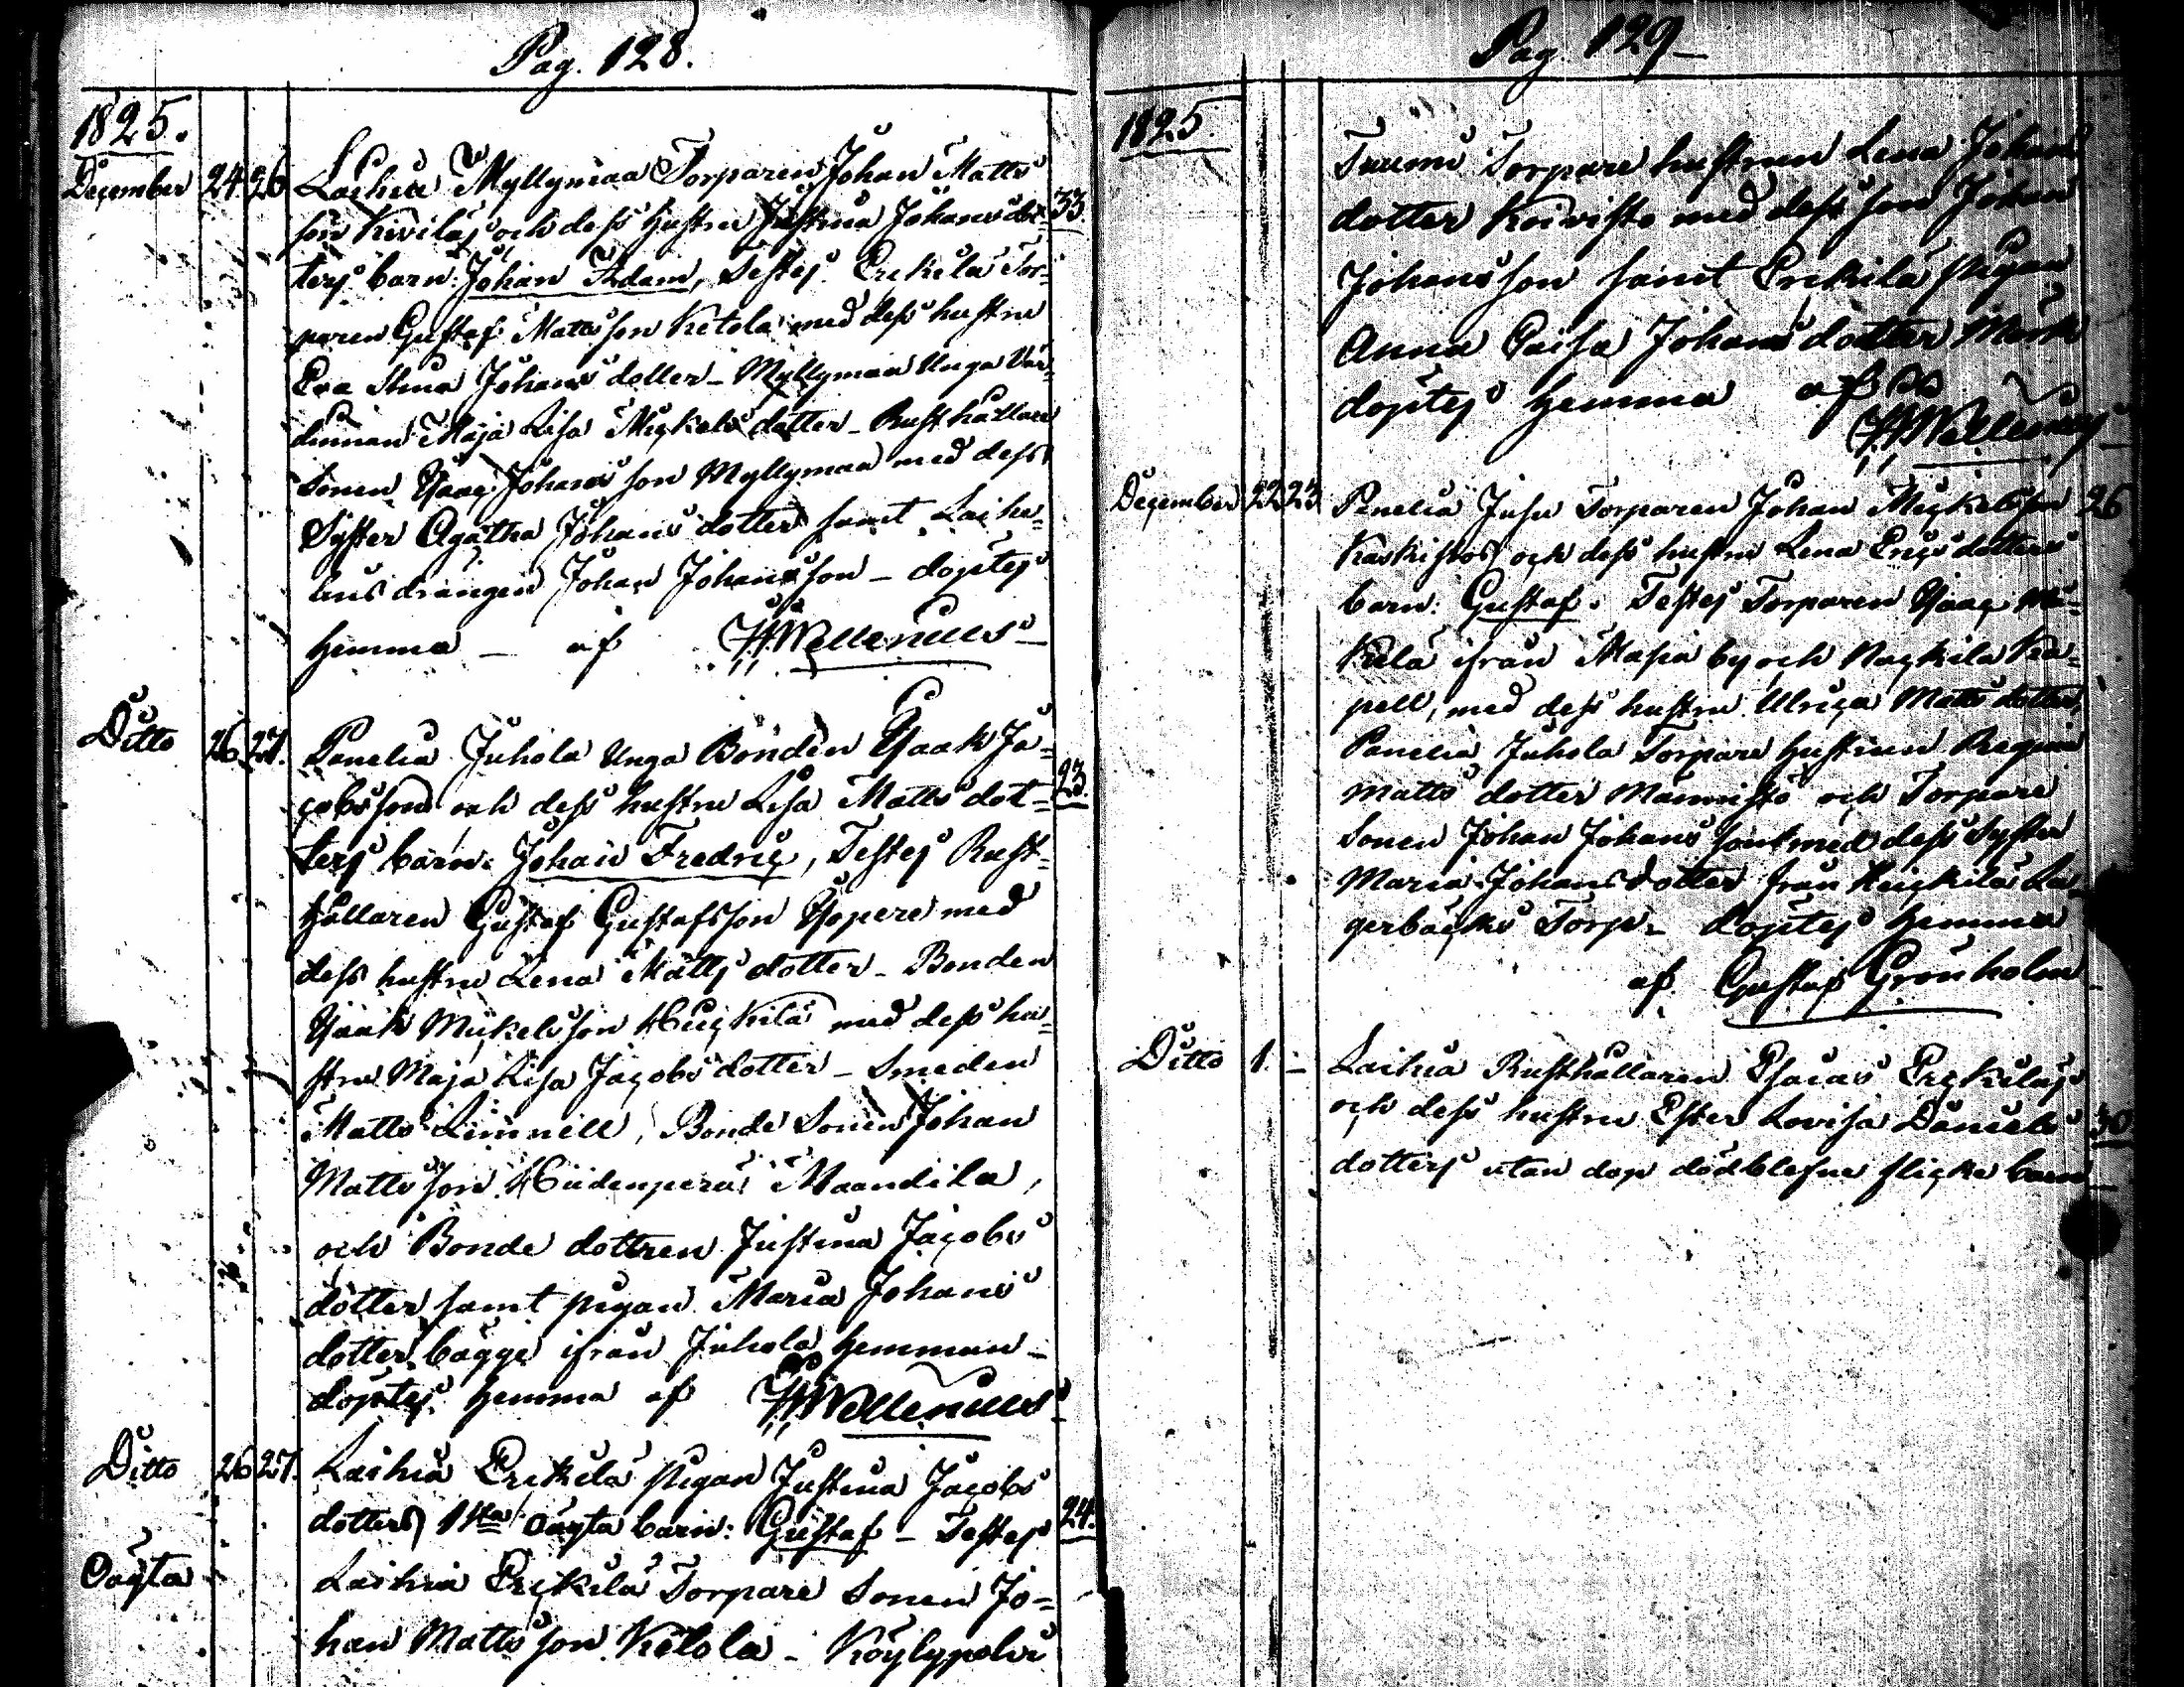 Pag. 128.
1825.
December 24 26 Laihia Myllymaa Torparen Johan Matts
son Kiviläs och dess Hustru Justina Johansdot= 33.
ters barn: Johan Adam, Testes Erckilä Tor=
paren Gustaf Mattsson Ketola med dess hustru
Eva Stina Johans dotter – Myllymaa Unga Vär=
dinnan Maja Lisa Mickels dotter – Rusthållare
Sonen Isaac Johans son Myllymaa med dess
Syster Agatha Johans dotter samt Laihia
drängen Johan Johansson – döptes
hemma – af HWallenius
Ditto 26 27. Panelia Juhola Unga Bonden Isaak Ja=
cobsson och dess hustru Lisa Matts dot= 23.
ters barn: Johan Fredric, Testes Rust=
hållaren Gustaf Gustafsson Yopere med
dess hustru Lena Matts dotter – Bonden
Isaak Mickelsson Heickilä med dess hu=
stru Maja Lisa Jacobs dotter – Smeden
Matts Limnell, Bonde Sonen Johan
Matts son Hiidenperä Naandila,
och Bonde dottren Justina Jacobs
dotter samt pigan Maria Johans
dotter bägge ifrån Juhola hemman –
döptes hemma af HWallenius
Ditto 26 27. Laihia Erckilä pigan Justina Jacobs
dotters 1sta oägta barn: Gustaf – Testes 24.
Oägta Laihia Erckilä Torpare Sonen Jo=
han Matts son Ketola – Köylypolvi
Pag. 129 –
1825.
Torpare hustrun Lena Johans
dotter Koivisto med dess son Johan
Johansson samt Erckilä pigan
Anna Caisa Johans dotter
döptes hemma af
HWallenius
December 22 23 Panelia Juhu Torparen Johan Mickelsson 26
Kaskistos och dess hustru Lena Erics dotters
barn: Gustaf. Testes Torparen Isaac Mi=
kilä ifrån Masia by och Nackila Ka=
pell, med dess hustru Ulrica Matts dotter,
Panelia Juhola Torpare hustrun Regina
Matts dotter Männistö och Torpare
Sonen Johan Johans son med dess Syster
Maria Johans dotter från Heickilä La=
gerbäcks Torp – döptes hemma
af Gustaf Grönholm
Ditto 1. – Laihia Rusthållaren Esaias Erckiläs
och dess hustru Ester Lovisa Daniels 30
dotters utan dop dödblefne flicke barn